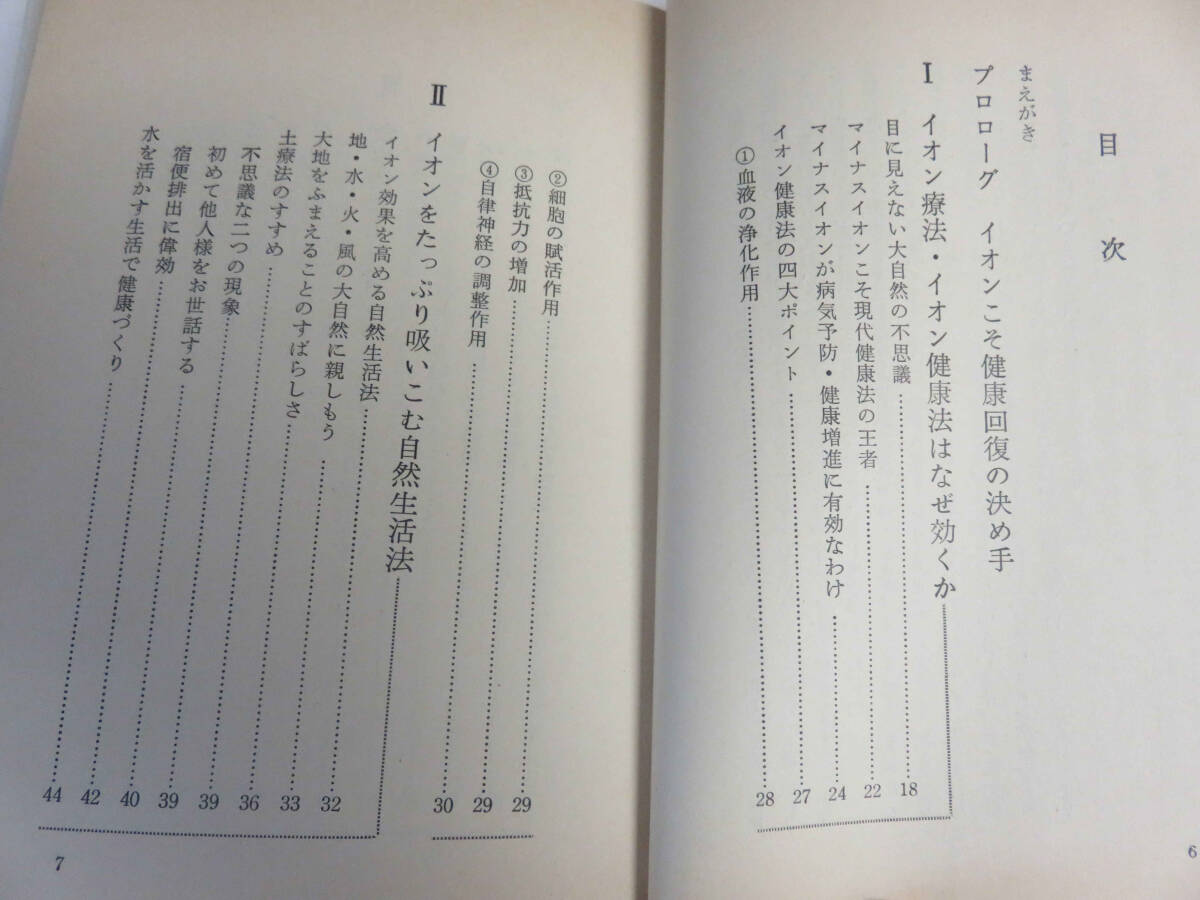 目次
まえがき
プロローグ イオンこそ健康回復の決め手
Ⅰ イオン療法・イオン健康法はなぜ効くか
目に見えない大自然の不思議……18
マイナスイオンこそ現代健康法の王者……22
マイナスイオンが病気予防・健康増進に有効なわけ……24
イオン健康法の四大ポイント……27
①血液の浄化作用……28
6
②細胞の賦活作用……29
③抵抗力の増加……29
④自律神経の調整作用……30
Ⅱ イオンをたっぷり吸いこむ自然生活法
イオン効果を高める自然生活法……32
地・水・火・風の大自然に親しもう……33
大地をふまえることのすばらしさ……36
土療法のすすめ……39
不思議な二つの現象……39
初めて他人様をお世話する……40
宿便排出に偉効……42
水を活かす生活で健康づくり……44
7